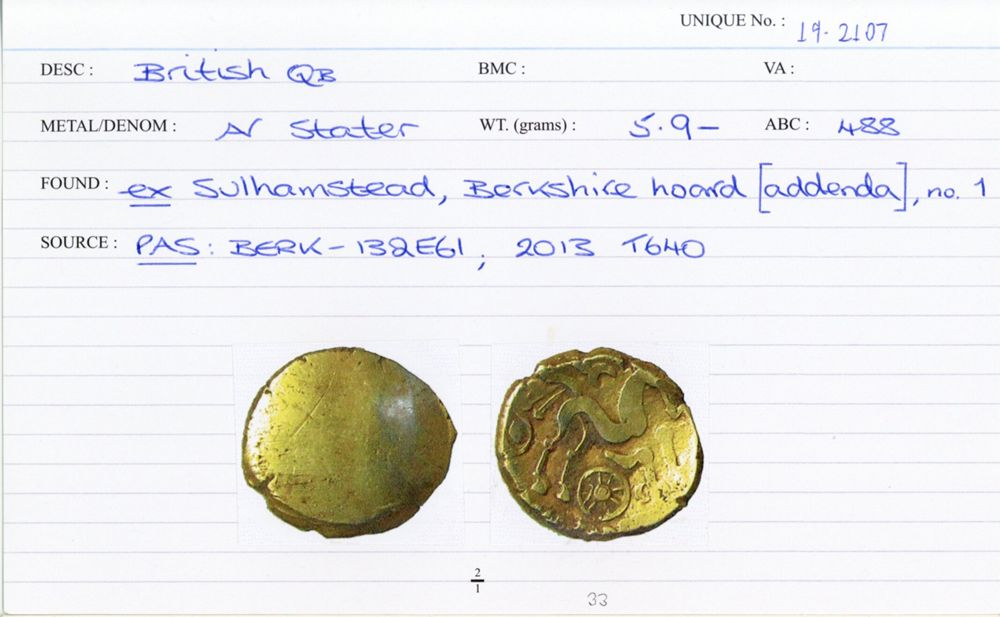 UNIQUE No. : 19.2107
DESC : British QB BMC : VA :
METAL/DENOM : AV Stater WT. (grams) : 5.9- ABC : 488
FOUND : ex Sulhamstead, Berkshire hoard [addenda], no. 1
SOURCE : PAS: BERK-132E61; 2013 T640
2
1
33